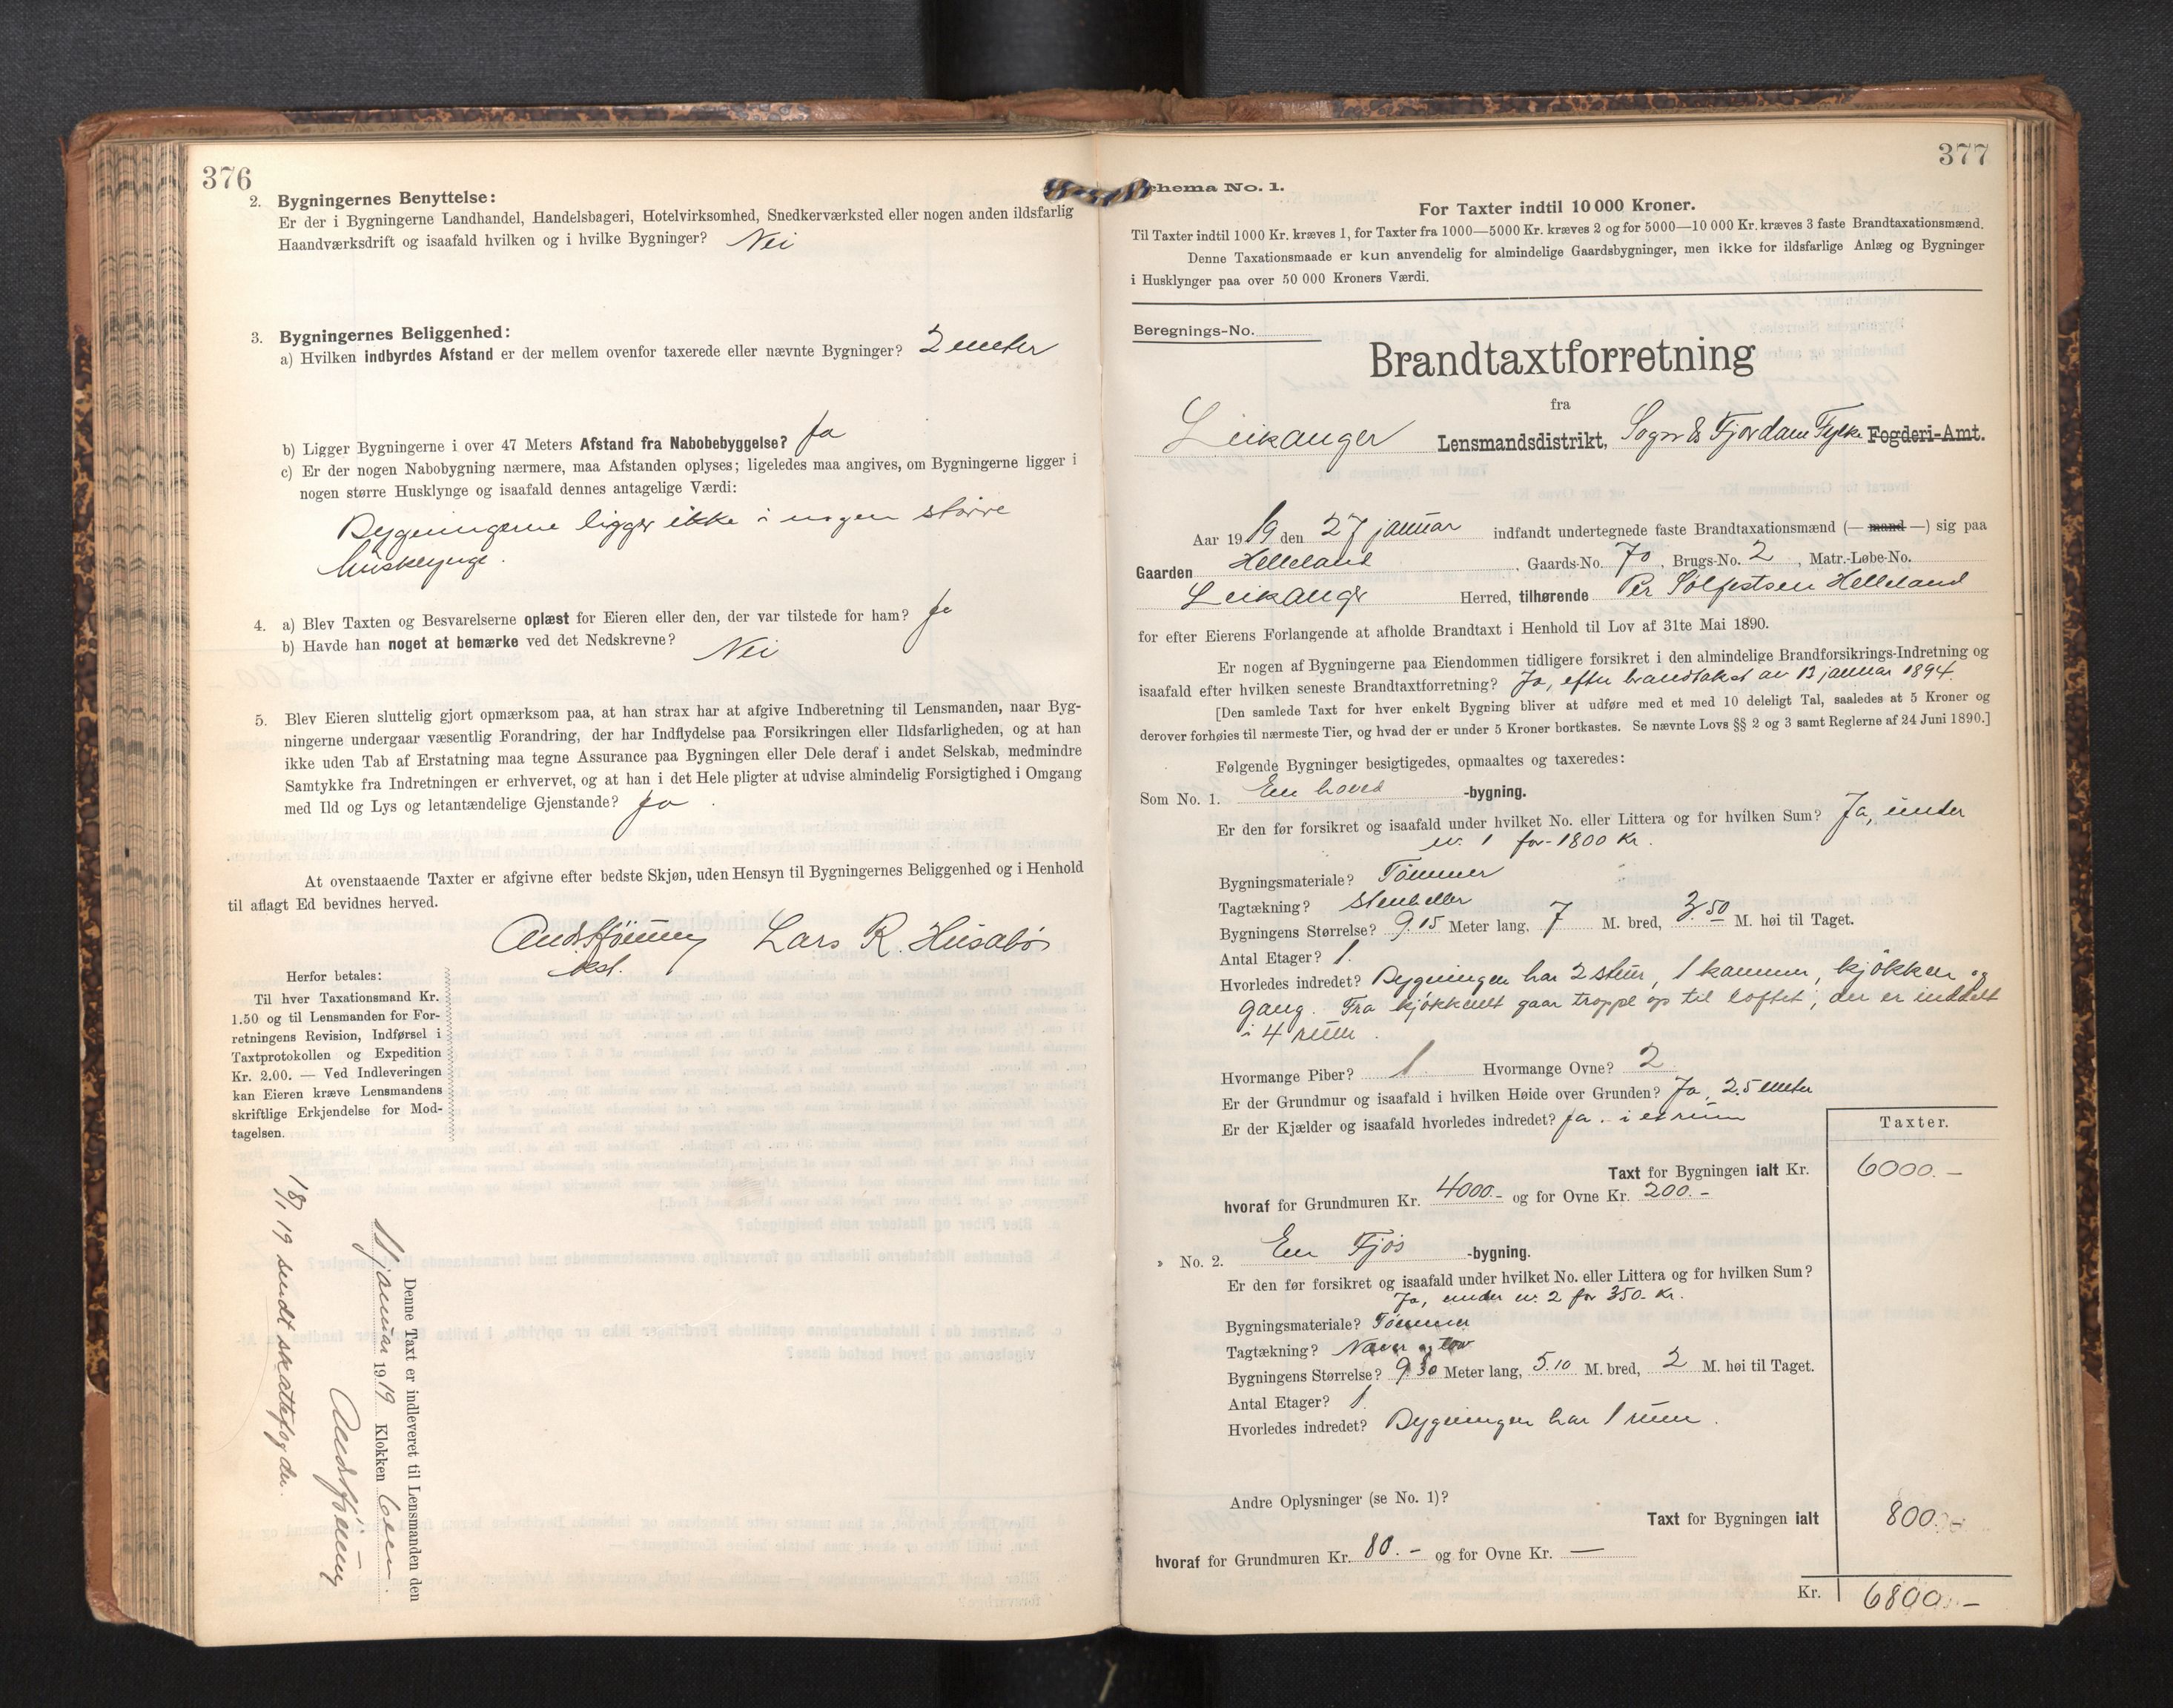 376
2. Bygningernes Benyttelse:
Er der i Bygningerne Landhandel, Handelsbageri, Hotelvirksomhed, Snedkerværksted eller nogen anden ildsfarlig
Haandværksdrift og isaafald hvilken og i hvilke Bygninger? Nei
3. Bygningernes Beliggenhed:
a) Hvilken indbyrdes Afstand er der mellem ovenfor taxerede eller nævnte Bygninger? 2 meter
b) Ligger Bygningerne i over 47 Meters Afstand fra Nabobebyggelse? Ja
c) Er der nogen Nabobygning nærmere, maa Afstanden oplyses; ligeledes maa angives, om Bygningerne ligger i
nogen større Husklynge og isaafald dennes antagelige Værdi:
Bygningerne ligger ikke i nogen större
husklynge.
4. a) Blev Taxten og Besvarelserne oplæst for Eieren eller den, der var tilstede for ham? Ja
b) Havde han noget at bemærke ved det Nedskrevne? Nei
5. Blev Eieren sluttelig gjort opmærksom paa, at han strax har at afgive Indberetning til Lensmanden, naar Byg-
ningerne undergaar væsentlig Forandring, der har Indflydelse paa Forsikringen eller Ildsfarligheden, og at han
ikke uden Tab af Erstatning maa tegne Assurance paa Bygningen eller Dele deraf i andet Selskab, medmindre
Samtykke fra Indretningen er erhvervet, og at han i det Hele pligter at udvise almindelig Forsigtighed i Omgang
med Ild og Lys og letantændelige Gjenstande? Ja.
At ovenstaaende Taxter er afgivne efter bedste Skjøn, uden Hensyn til Bygningernes Beliggenhed og i Henhold
til aflagt Ed bevidnes herved.
Lars R. Husabø
Herfor betales:
Til hver Taxationsmand Kr.
1.50 og til Lensmanden for For-
retningens Revision, Indførsel i
Taxtprotokollen og Expedition
Kr. 2.00. — Ved Indleveringen
kan Eieren kræve Lensmandens
skriftlige Erkjendelse for Mod-
tagelsen.
Denne Taxt er indleveret til Lensmanden den
januar 1919 Klokken
19 sendt skattefogden.
377
chema No. 1.
For Taxter indtil 10 000 Kroner.
Til Taxter indtil 1000 Kr. kræves 1, for Taxter fra 1000—5000 Kr. kræves 2 og for 5000—10 000 Kr. kræves 3 faste Brandtaxationsmænd.
Denne Taxationsmaade er kun anvendelig for almindelige Gaardsbygninger, men ikke for ildsfarlige Anlæg og Bygninger
i Husklynger paa over 50 000 Kroners Værdi.
Beregnings-No.
Brandtaxtforretning
fra
Leikanger Lensmandsdistrikt, Sogn & Fjordane Fylke Fogderi-Amt.
Aar 1919 den 27 januar indfandt undertegnede faste Brandtaxationsmænd (— mand —) sig paa
Gaarden Helleland, Gaards-No. 70, Brugs-No. 2, Matr.-Løbe-No.
Leikanger Herred, tilhørende Per Sølfestsen Helleland
for efter Eierens Forlangende at afholde Brandtaxt i Henhold til Lov af 31te Mai 1890.
Er nogen af Bygningerne paa Eiendommen tidligere forsikret i den almindelige Brandforsikrings-Indretning og
isaafald efter hvilken seneste Brandtaxtforretning? Ja, efter brandtakst av 13 januar 1894.
[Den samlede Taxt for hver enkelt Bygning bliver at udføre med et med 10 deleligt Tal, saaledes at 5 Kroner og
derover forhøies til nærmeste Tier, og hvad der er under 5 Kroner bortkastes. Se nævnte Lovs §§ 2 og 3 samt Reglerne af 24 Juni 1890.]
Følgende Bygninger besigtigedes, opmaaltes og taxeredes:
Som No. 1. En hoved -bygning.
Er den før forsikret og isaafald under hvilket No. eller Littera og for hvilken Sum? Ja, under
nr. 1 for 1800 kr.
Bygningsmateriale? Tömmer
Tagtækning? Stenheller
Bygningens Størrelse? 9.15 Meter lang, 7 M. bred, 3.50 M. høi til Taget.
Antal Etager? 1.
Hvorledes indredet? Bygningen har 2 stuer, 1 kammer, kjökken og
gang. Fra kjökkenet gaar trappe op til loftet, der er inddelt
i 4 rum.
Hvormange Piber? 1. Hvormange Ovne? 2
Er der Grundmur og isaafald i hvilken Høide over Grunden? Ja, 2.5 meter
Er der Kjælder og isaafald hvorledes indredet? Ja. i et rum
Taxter.
Taxt for Bygningen ialt Kr. 6000.-
hvoraf for Grundmuren Kr. 4000.- og for Ovne Kr. 200.-
» No. 2. En Fjös -bygning.
Er den før forsikret og isaafald under hvilket No. eller Littera og for hvilken Sum?
Ja, under nr. 2 for 350 kr.
Bygningsmateriale? Tömmer
Tagtækning? Never og torv
Bygningens Størrelse? 9.30 Meter lang, 5.10 M. bred, 2 M. høi til Taget.
Antal Etager? 1.
Hvorledes indredet? Bygningen har 1 rum.
Andre Oplysninger (se No. 1)?
Taxt for Bygningen ialt 800.-
hvoraf for Grundmuren Kr. 80.- og for Ovne Kr. —
Kr. 6800.-